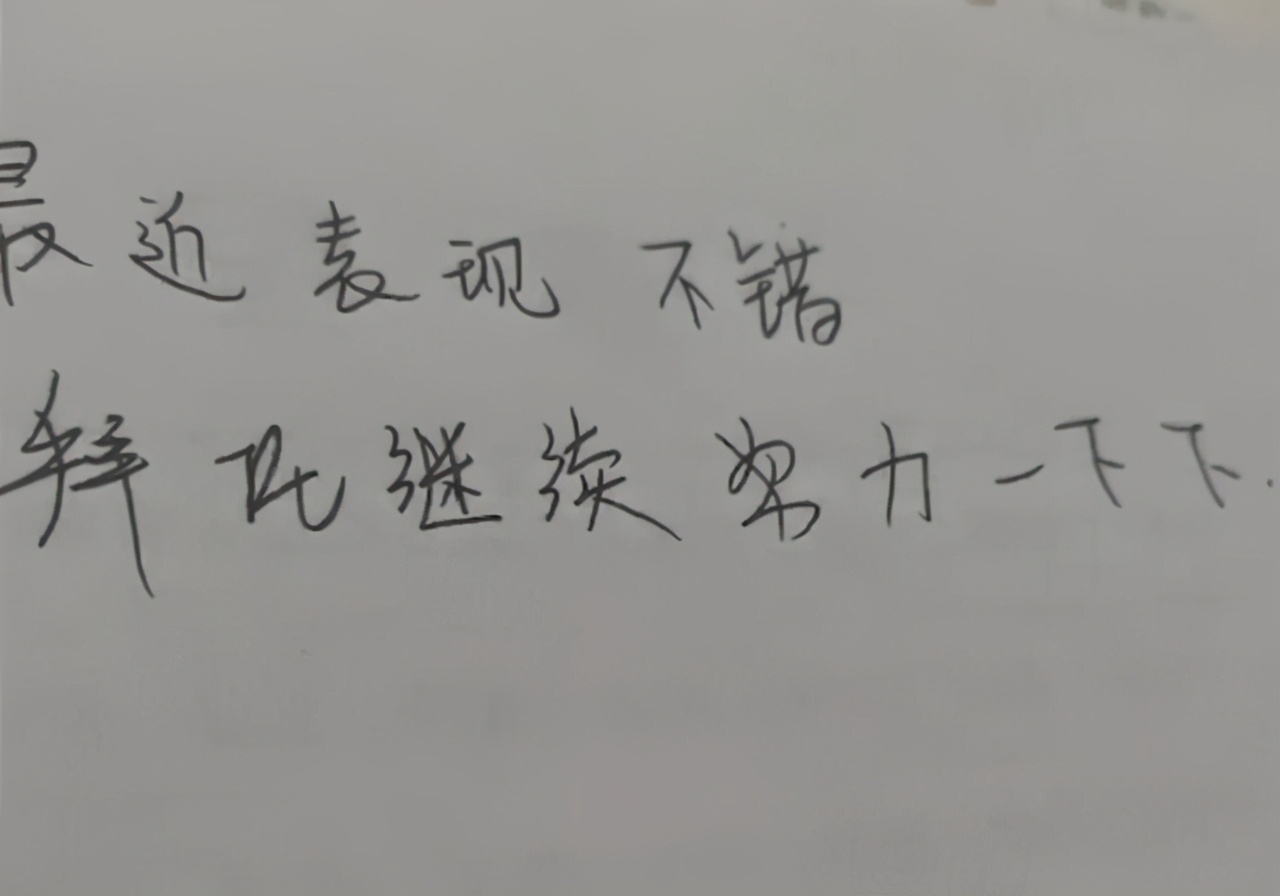 最近表现不错
继续努力一下下.